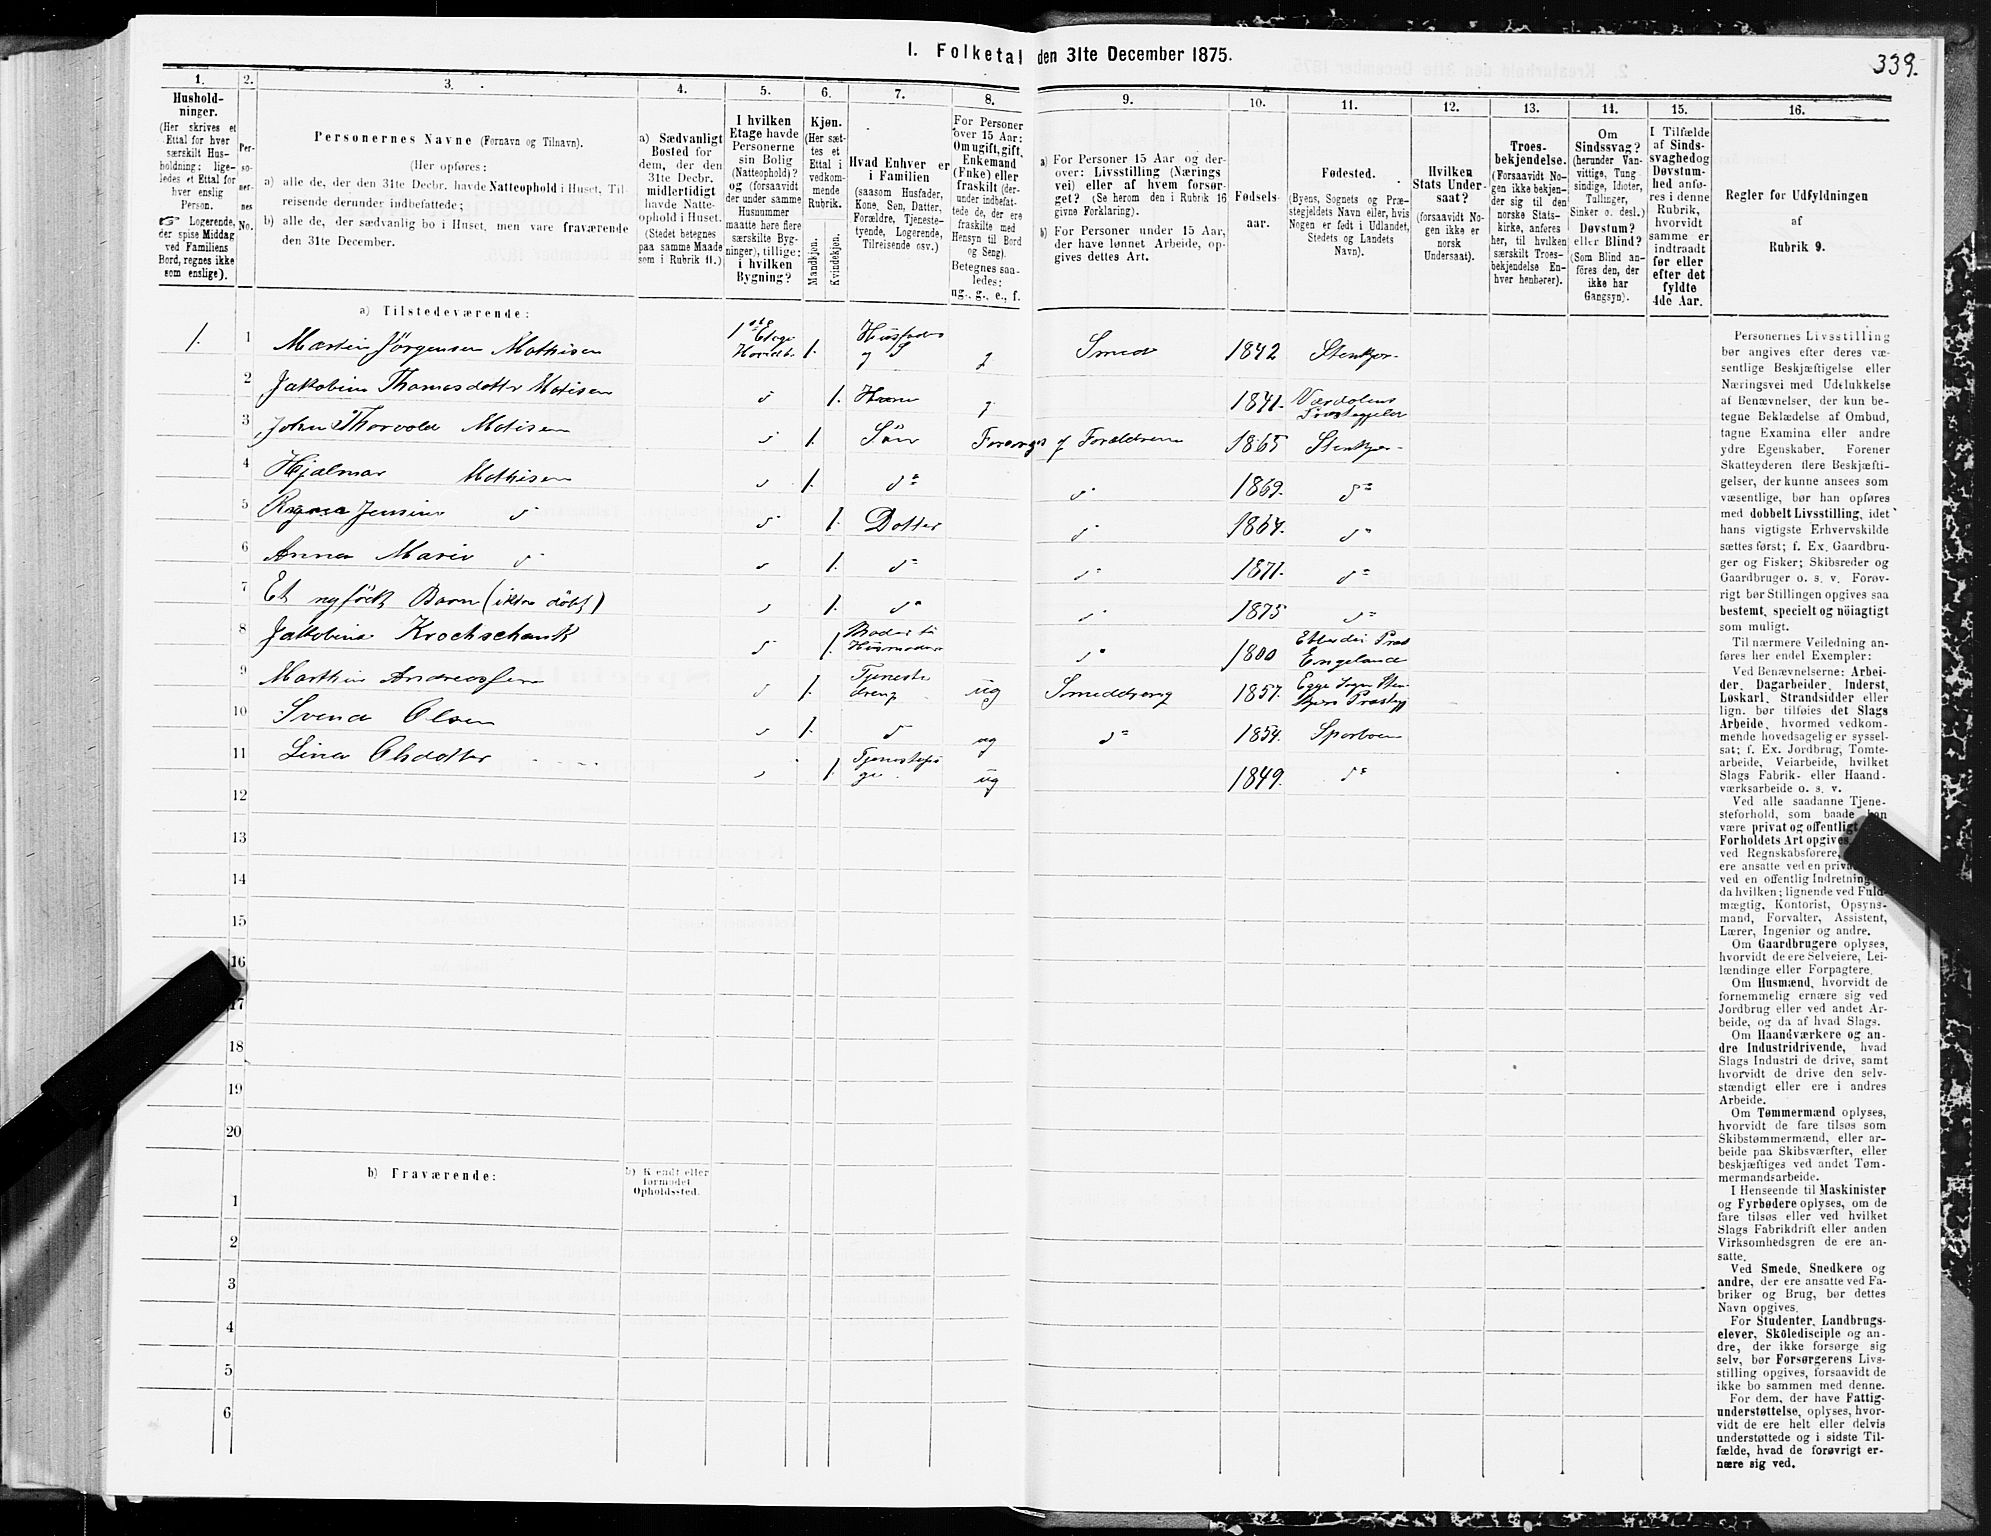 I. Folketal den 31te December 1875.
339.
1.
2.
3.
4.
5.
6.
7.
8.
9.
10.
11.
12.
13.
14.
15.
16.
Hushold-
ninger.
(Her skrives et
Ettal for hver
særskilt Hus-
holdning; lige-
ledes et Ettal for
hver enslig
Person.
Logerende,
der spise Middag
ved Familiens
Bord, regnes ikke
som enslige).
Per-
so-
ner-
nes
No.
Personernes Navne (Fornavn og Tilnavn).
(Her opføres:
a) alle de, der den 31te Decbr. havde Natteophold i Huset, Til-
reisende derunder indbefattede;
b) alle de, der sædvanlig bo i Huset, men vare fraværende
den 31te December.
a) Sædvanligt
Bosted for
dem, der den
31te Decbr.
midlertidigt
havde Natte-
ophold i Huset.
(Stedet betegnes
paa samme Maade
som i Rubrik 11.)
I hvilken
Etage havde
Personerne
sin Bolig
(Natteophold)?
og (forsaavidt
der under samme
Husnummer
maatte høre flere
særskilte Byg-
ninger), tillige:
i hvilken
Bygning?
Kjøn.
(Her sæt-
tes et
Ettal i
vedkom-
mende
Rubrik.
Mandkjøn.
Kvindekjøn.
Hvad Enhver er
i Familien
(saasom Husfader,
Kone, Søn, Datter,
Forældre, Tjeneste-
tyende, Logerende,
Tilreisende osv.)
For Personer
over 15 Aar:
Om ugift, gift,
Enkemand
(Enke) eller
fraskilt (der-
under indbefat-
tede de, der ere
fraskilte med
Hensyn til Bord
og Seng).
Betegnes saa-
ledes:
ug., g., e., f.
a) For Personer 15 Aar og der-
over: Livsstilling (Nærings
vei) eller af hvem forsør-
get? (Se herom den i Rubrik 16
givne Forklaring).
b) For Personer under 15 Aar,
der have lønnet Arbeide, op-
gives dettes Art.
Fødsels-
aar.
Fødested.
(Byens, Sognets og Præ-
stegjeldets Navn eller, hvis
Nogen er født i Udlandet,
Stedets og Landets
Navn).
Hvilken
Stats Under-
saat?
(forsaavidt No-
gen ikke er
norsk
Undersaat).
Troes-
bekjendelse.
(Forsaavidt No-
gen ikke bekjen-
der sig til den
norske Stats-
kirke, anføres
her, til hvilken
særskilt Troes-
bekjendelse En-
hver henhører).
Om
Sindssvag?
(herunder Van-
vittige, Tung
sindige, Idioter,
Tullinger,
Sinker o. desl.)
Døvstum?
eller Blind?
(Som Blind an-
føres den, der
ikke har
Gangsyn).
I Tilfælde
af Sinds-
svaghed og
Døvstum-
hed anfø-
res i denne
Rubrik,
hvorvidt
samme er
indtraadt
før eller
efter det
fyldte
4de Aar.
Regler for Udfyldningen
af
Rubrik 9.
a) Tilstedeværende:
1. 1 Martin Jörgensen Mathisen 1ste Etage 1. Husfader g Smed 1842 Stenkjer
2 Jakkobine Thomasdotter Matisen 1. Kone g 1841. Værdalens Præstegjeld
3 John Thorvald Matisen 1. Sön Forsörges af Forældrene 1865 Stenkjer
4 Hjalmar Mathisen 1. do 1869. do
5 Jensine 1. Dotter 1864. do
6 Anna Marie 1. do 1871. do
7 Et nyfödt Barn (ikke döbt) 1. do 1875 do
8 Jakkobine 1. Moder til Husmoderen 1800 England
9 Marthin Andreassen 1. Tjeneste dreng ug Smeddreng 1857. Egge Sogn
10 Svend Olsen 1. ug do 1854. Sparboen
11 Lina Olsdotter 1. Tjenestepi ge ug 1849. do
12
13
14
15
16
17
18
19
20
b) Fraværende:
b) Kjendt eller
formodet
Opholdssted.
1
2
3
4
5
6
Personernes Livsstilling
bør angives efter deres væ-
sentlige Beskjæftigelse eller
Næringsvei med Udelukkelse
af Benævnelser, der kun be-
tegne Beklædelse af Ombud,
tagne Examina eller andre
ydre Egenskaber. Forener
Skatteyderen flere Beskjæfti-
gelser, der kunne ansees som
væsentlige, bør han opføres
med dobbelt Livsstilling, idet
hans vigtigste Erhvervskilde
sættes først; f. Ex. Gaardbru-
ger og Fisker; Skibsreder og
Gaardbruger o. s. v. Forøv-
rigt bør Stillingen opgives saa
bestemt, specielt og nöiagtigt
som muligt.
Til nærmere Veiledning an-
føres her endel Exempler:
Ved Benævnelserne: Arbei-
der, Dagarbeider, Inderst,
Løskarl, Strandsidder eller
lign. bør tilføies det Slags
Arbeide, hvormed vedkom-
mende hovedsagelig er syssel-
sat; f. Ex. Jordbrug, Tomte-
arbeide, Veiarbeide, hvilket
Slags Fabrik- eller Haand-
værksarbeide o. s. v.
Ved alle saadanne Tjene-
steforhold, som baade kan
være privat og offentlig
Forholdets Art opgives
ved Regnskabsførere,
ere ansatte ved en priva
ved en offentlig Indretning
da hvilken; lignende ved Fuld-
mægtig, Kontorist, Opsyns-
mand, Forvalter, Assistent,
Lærer, Ingeniør og andre.
Om Gaardbrugere oplyses,
hvorvidt de ere Selveiere, Lei-
lændinge eller Forpagtere.
Om Husmænd, hvorvidt de
fornemmelig ernære sig ved
Jordbrug eller ved andet Ar-
beide, og da af hvad Slags.
Om Haandværkere og an-
dre Industridrivende, hvad
Slags Industri de drive, samt
hvorvidt de drive den selv-
stændigt eller ere i andres
Arbeide.
Om Tømmermænd oplyses,
hvorvidt de fare tilsøs som
Skibstømmermænd, eller ar-
beide paa Skibsværfter, eller
beskjæftiges ved andet Tøm-
mermandsarbeide.
I Henseende til Maskinister
og Fyrbødere oplyses, om de
fare tilsøs eller ved hvilket
Slags Fabrikdrift eller anden
Virksomhedsgren de ere an-
satte.
Ved Smede, Snedkere og
andre, der ere ansatte ved Fa-
briker og Brug, bør dettes
Navn opgives.
For Studenter, Landbrugs-
elever, Skoledisciple og an-
dre, der ikke forsørge sig
selv, bør Forsørgerens Livs-
stilling opgives, forsaavidt de
ikke bo sammen med denne.
For dem, der have Fattig-
understøttelse, oplyses, hvor-
vidt de ere helt eller delvis
understøttede og i sidste Til-
fælde, hvad de forøvrigt er-
nære sig ved.